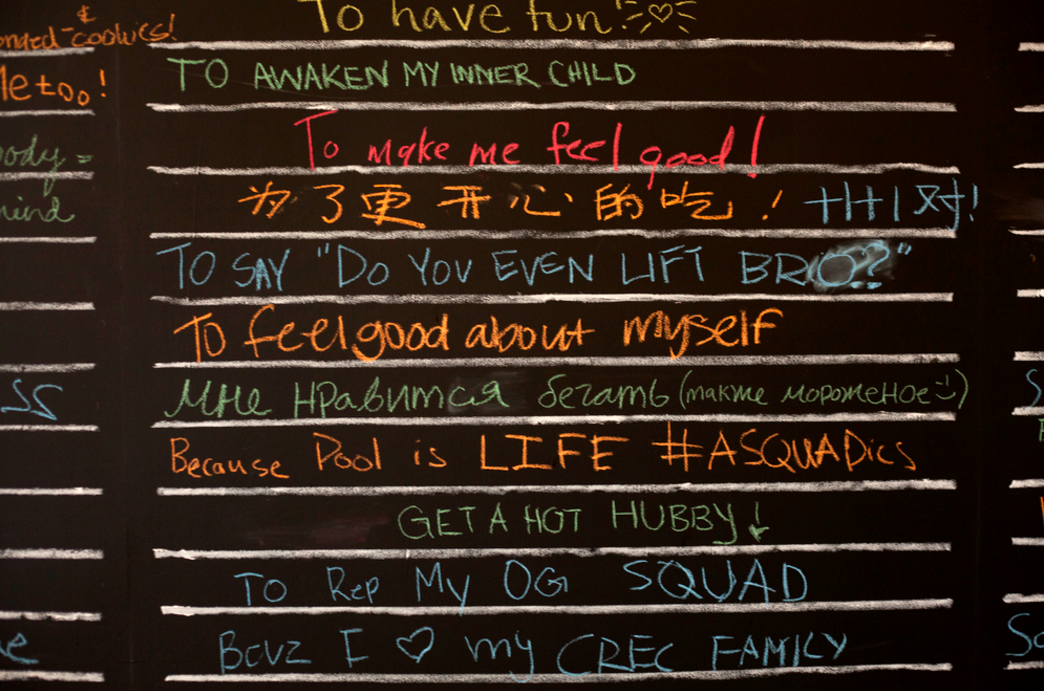 To have fun!
& cookies!
TO AWAKEN MY INNER CHILD
Me too!
To make me feel good!
body =
为了更开心的吃! 卄卄1 对!
mind
TO SAY "DO YOU EVEN LIFT BRO?"
To feel good about myself
Мне нравится бегать (также мороженое :-)
SS
Because Pool is LIFE #ASQUADics
GET A HOT HUBBY!
TO Rep My OG SQUAD
Bcuz I ♡ my CREC FAMILY